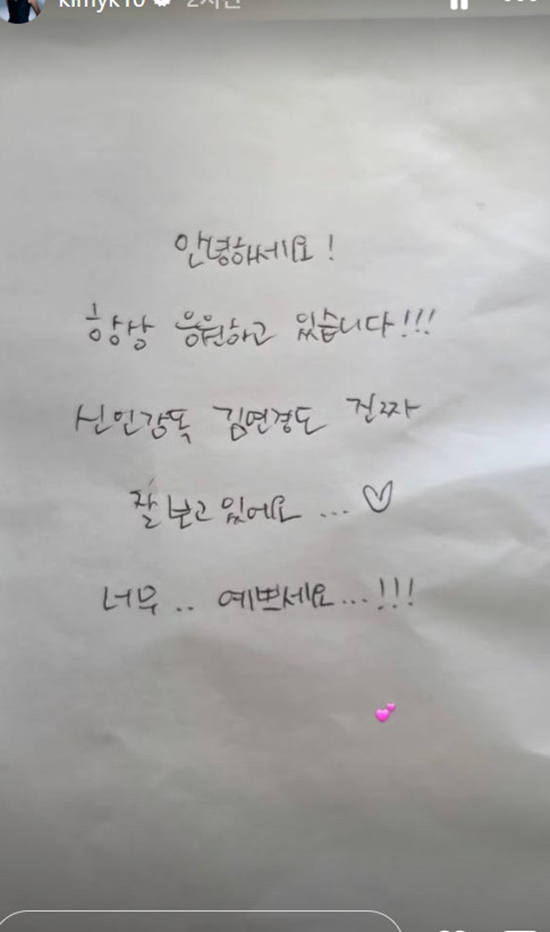 kimyk10 2시간
안녕하세요!
항상 응원하고 있습니다!!!
신인감독 김연경도 진짜
잘 보고 있에요 ... ♡
너무 .. 예쁘세요...!!!